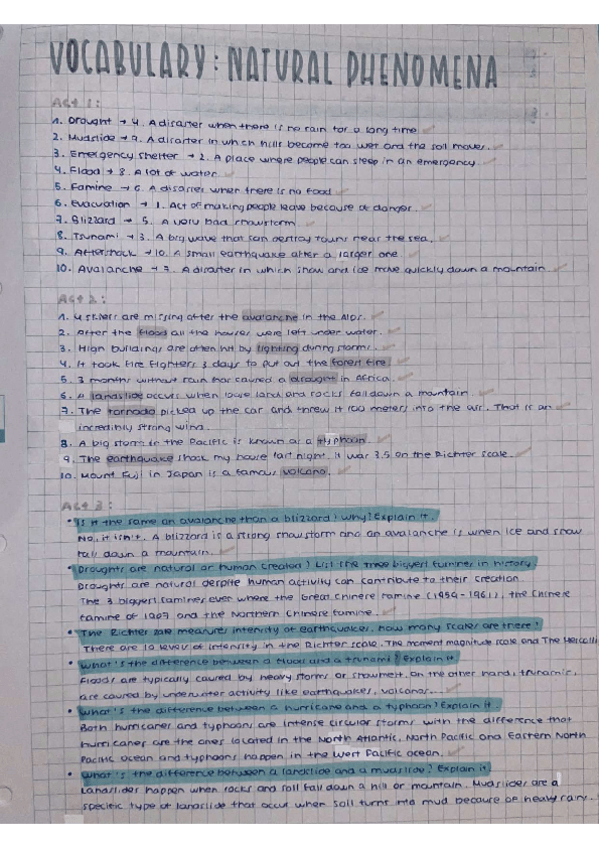 VOCABULARY: NATURAL PHENOMENA
Act 1:
1. Drought → 4. A disaster when there is no rain for a long time
2. Mudslide → 9. A disaster in which hills become too wet and the soil moves.
3. Emergency shelter → 2. A place where people can sleep in an emergency
4. Flood → 8. A lot of water
5. Famine → 6. A disaster when there is no food
6. Evacuation → 1. Act of making people leave because of danger.
7. Blizzard → 5. A very bad snowstorm
8. Tsunami → 3. A big wave that can destroy towns near the sea.
9. Aftershock → 10. A small earthquake after a larger one
10. Avalanche → 7. A disaster in which snow and ice move quickly down a mountain
Act 2:
1. 4 skiers are missing after the avalanche in the Alps.
2. After the flood all the houses were left under water.
3. High buildings are often hit by lighting during storms.
4. It took fire fighters 3 days to put out the forest fire.
5. 3 months without rain has caused a drought in Africa.
6. A landslide occurs when loose land and rocks fall down a mountain.
7. The tornado picked up the car and threw it 100 meters into the air. That is an
incredibly strong wind.
8. A big storm in the Pacific is known as a typhoon.
9. The earthquake shook my house last night. It was 3.5 on the Richter scale.
10. Mount Fuji in Japan is a famous volcano.
Act 3:
• Is it the same an avalanche than a blizzard? Why? Explain it.
No, it isn't. A blizzard is a strong snowstorm and an avalanche is when ice and snow
fall down a mountain.
• Droughts are natural or human created? List the three biggest famines in history
Droughts are natural despite human activity can contribute to their creation.
The 3 biggest famines ever where the Great Chinese Famine (1959-1961), the Chinese
famine of 1907 and the Northern Chinese famine.
• The Richter scale measure intensity of earthquakes. How many scales are there?
There are 10 levels of intensity in the Richter scale. The moment magnitude scale and The Mercalli
• What's the difference between a flood and a tsunami? Explain it
Floods are typically caused by heavy storms or snowmelt. On the other hand, tsunamis,
are caused by underwater activity like earthquakes, volcanos...
• What's the difference between a hurricane and a typhoon? Explain it.
Both hurricanes and typhoons are intense circular storms with the difference that
hurricanes are the ones located in the North Atlantic, North Pacific and Eastern North
Pacific ocean and typhoons happen in the West Pacific ocean.
• What's the difference between a landslide and a mudslide? Explain it
Landslides happen when rocks and soil fall down a hill or mountain. Mudslides are a
specific type of landslide that occur when soil turns into mud because of heavy rains.